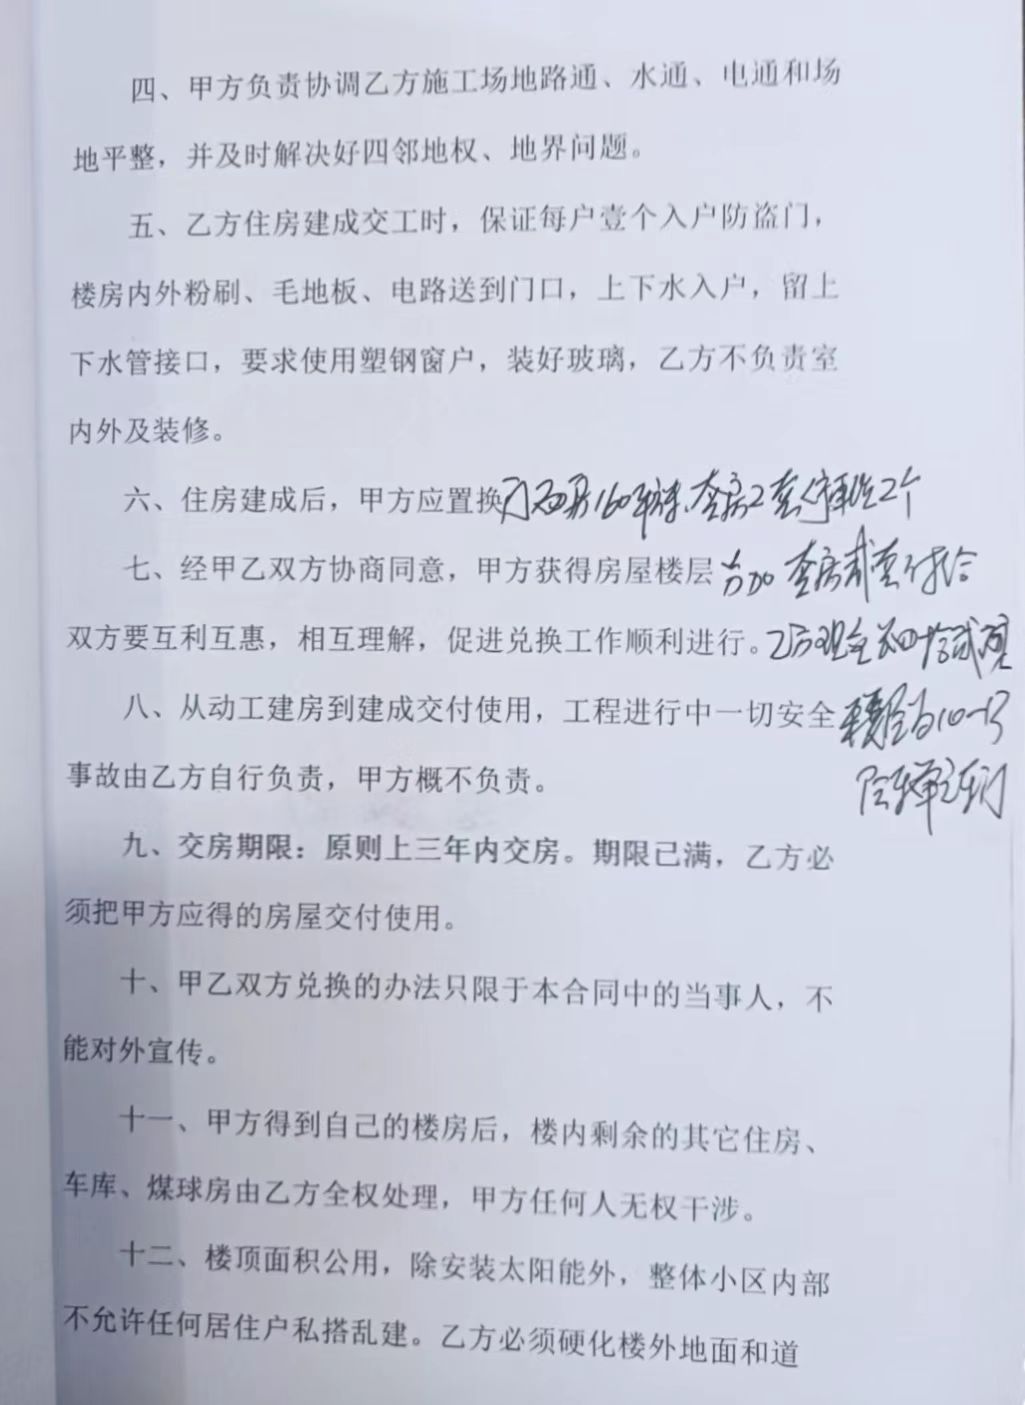 四、甲方负责协调乙方施工场地路通、水通、电通和场
地平整，并及时解决好四邻地权、地界问题。
五、乙方住房建成交工时，保证每户壹个入户防盗门，
楼房内外粉刷、毛地板、电路送到门口，上下水入户，留上
下水管接口，要求使用塑钢窗户，装好玻璃，乙方不负责室
内外及装修。
六、住房建成后，甲方应置换门面房160平方、套房2套、2个
七、经甲乙双方协商同意，甲方获得房屋楼层 套房
双方要互利互惠，相互理解，促进兑换工作顺利进行。乙方
八、从动工建房到建成交付使用，工程进行中一切安全
事故由乙方自行负责，甲方概不负责。
九、交房期限：原则上三年内交房。期限已满，乙方必
须把甲方应得的房屋交付使用。
十、甲乙双方兑换的办法只限于本合同中的当事人，不
能对外宣传。
十一、甲方得到自己的楼房后，楼内剩余的其它住房、
车库、煤球房由乙方全权处理，甲方任何人无权干涉。
十二、楼顶面积公用，除安装太阳能外，整体小区内部
不允许任何居住户私搭乱建。乙方必须硬化楼外地面和道